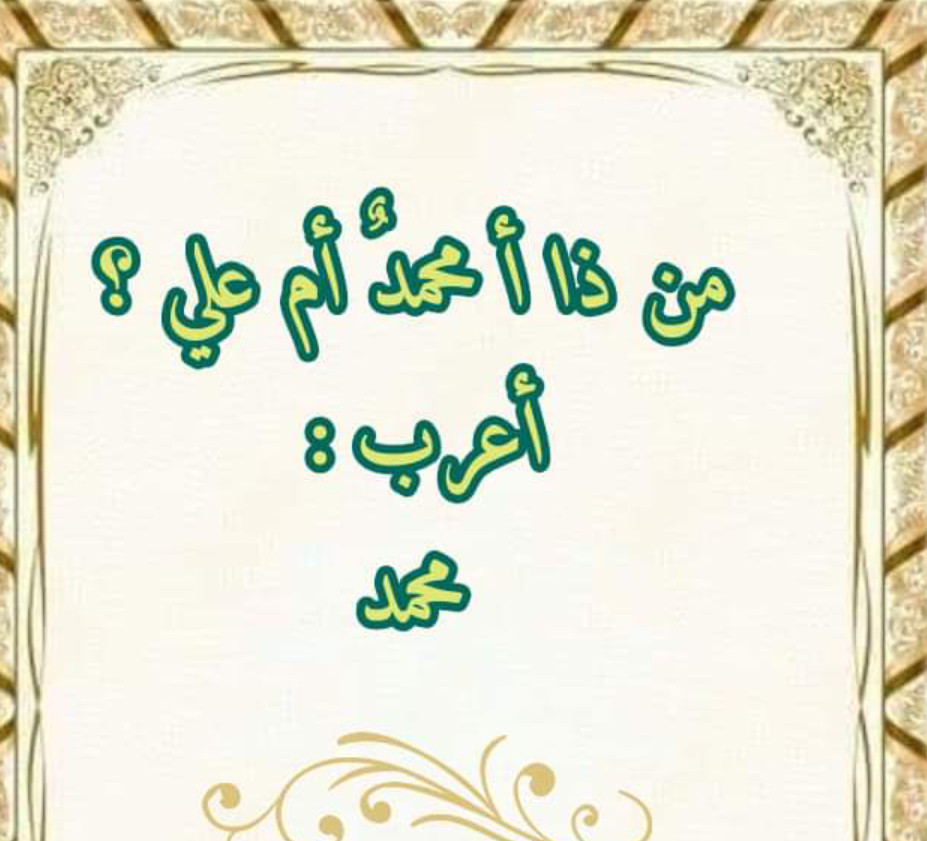 من ذا أ محمدٌ أم علي ؟
أعرب :
محمد